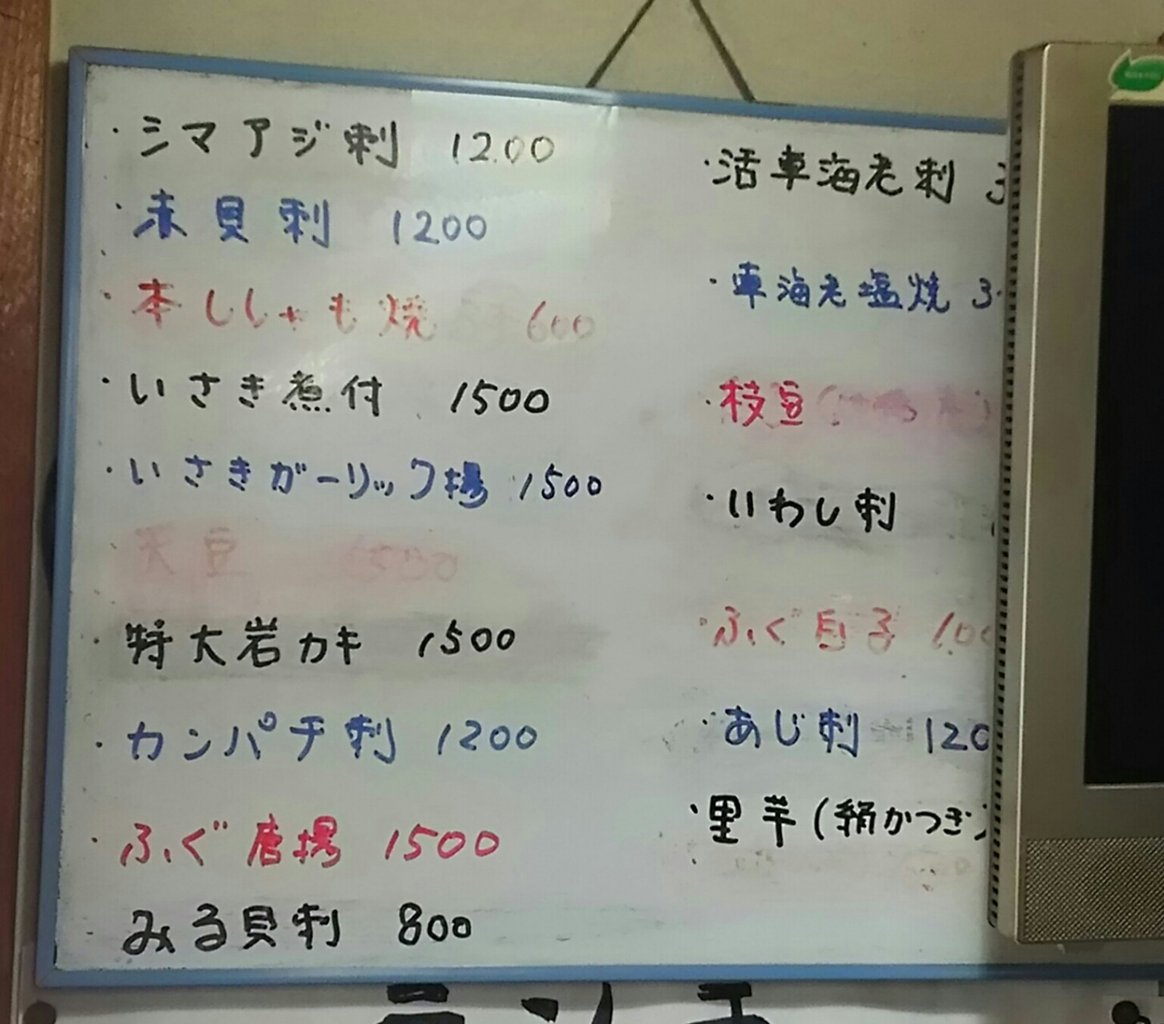 ・シマアジ刺 1200
・赤貝刺 1200
・本ししゃも焼 600
・いさき煮付 1500
・いさきガーリック揚 1500
天豆
・特大岩カキ 1500
・カンパチ刺 1200
・ふぐ唐揚 1500
みる貝刺 800
・活車海老刺 3
・車海老塩焼 3
・枝豆
・いわし刺
・ふぐ白子 100
・あじ刺 120
・里芋(絹かつぎ)
ランチ